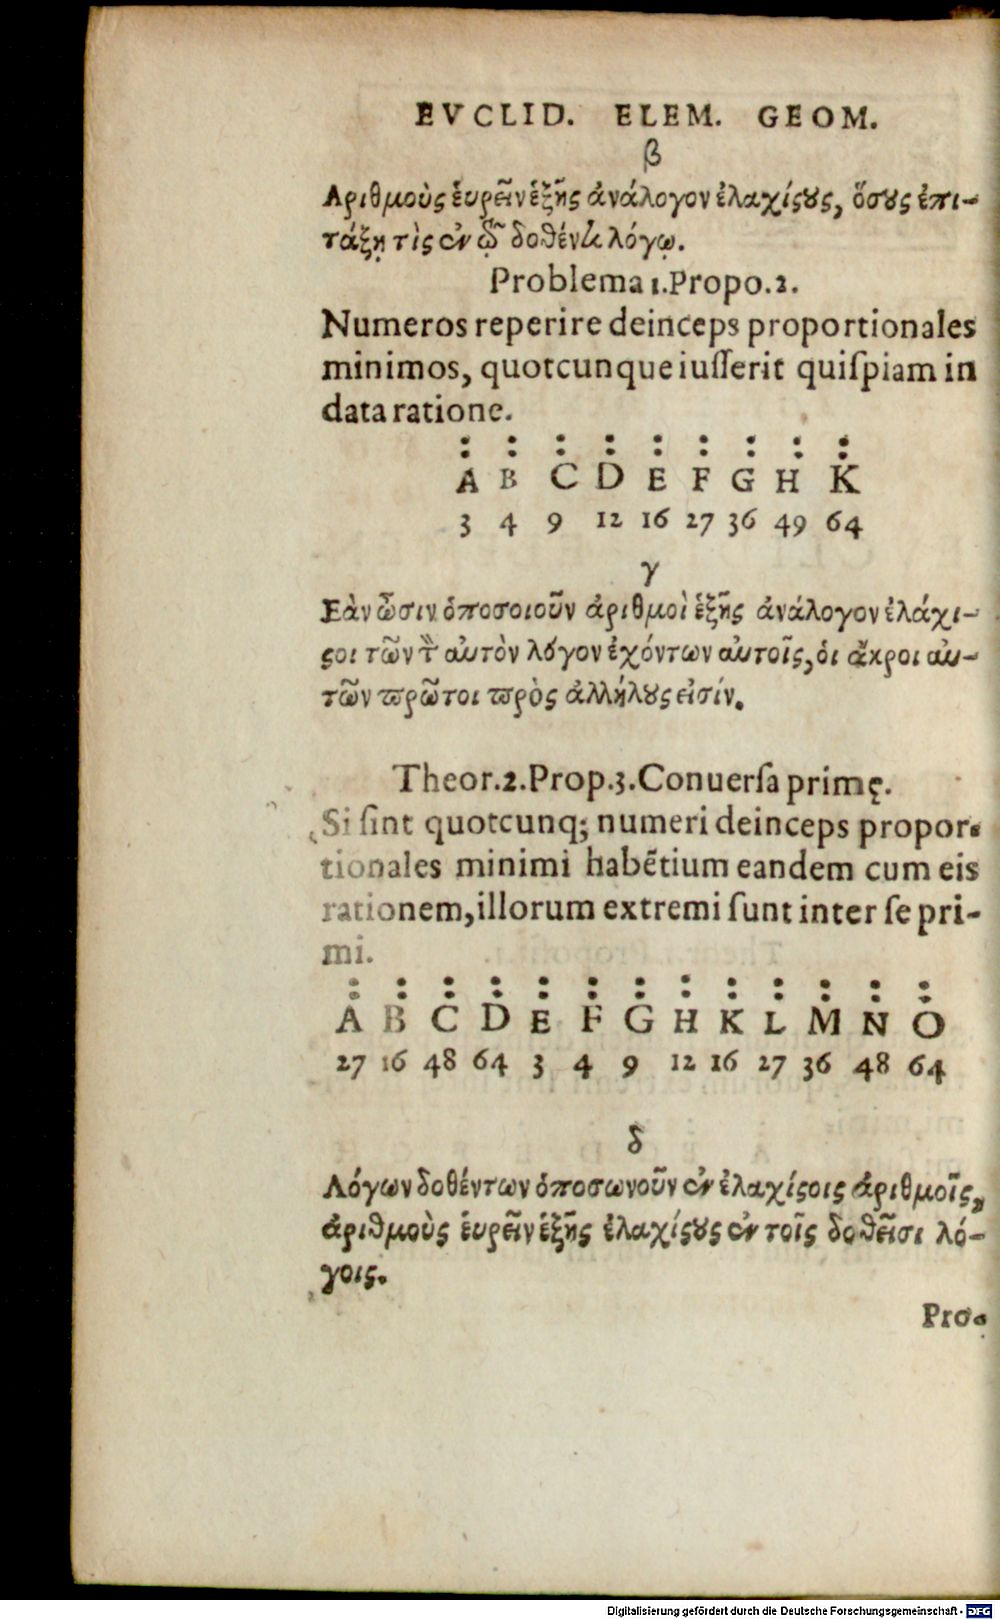 EVCLID. ELEM. GEOM.
β
Αριθμοὺς ἑυρεῖν ἑξῆς ἀνάλογον ἐλαχίϛȣς, ὅσȣς ἐπι-
τάξῃ τὶς ἐν τῷ δοθέντι λόγῳ.
Problema 1.Propo.2.
Numeros reperire deinceps proportionales
minimos, quotcunque iuſſerit quiſpiam in
data ratione.
: : : : : : : : :
A B C D E F G H K
3 4 9 12 16 27 36 49 64
γ
Εὰν ὦσιν ὁποσοιοῦν ἀριθμοὶ ἑξῆς ἀνάλογον ἐλάχι-
ϛοι τῶν τ̀ αὐτὸν λόγον ἐχόντων αὐτοῖς, ὁι ἄκροι αὐ-
τῶν ϖρῶτοι ϖρὸς ἀλλήλȣς εἰσίν.
Theor.2.Prop.3.Conuerſa primę.
Si ſint quotcunq; numeri deinceps propor-
tionales minimi habẽtium eandem cum eis
rationem, illorum extremi ſunt inter ſe pri-
mi.
: : : : : : : : : : : : :
A B C D E F G H K L M N O
27 16 48 64 3 4 9 12 16 27 36 48 64
δ
Λόγων δοθέντων ὁποσωνοῦν ἐν ἐλαχίϛοις ἀριθμοῖς,
ἀριθμοὺς ἑυρεῖν ἑξῆς ἐλαχίϛȣς ἐν τοῖς δοθεῖσι λό-
γοις.
Pro-
Digitalisierung gefördert durch die Deutsche Forschungsgemeinschaft - DFG